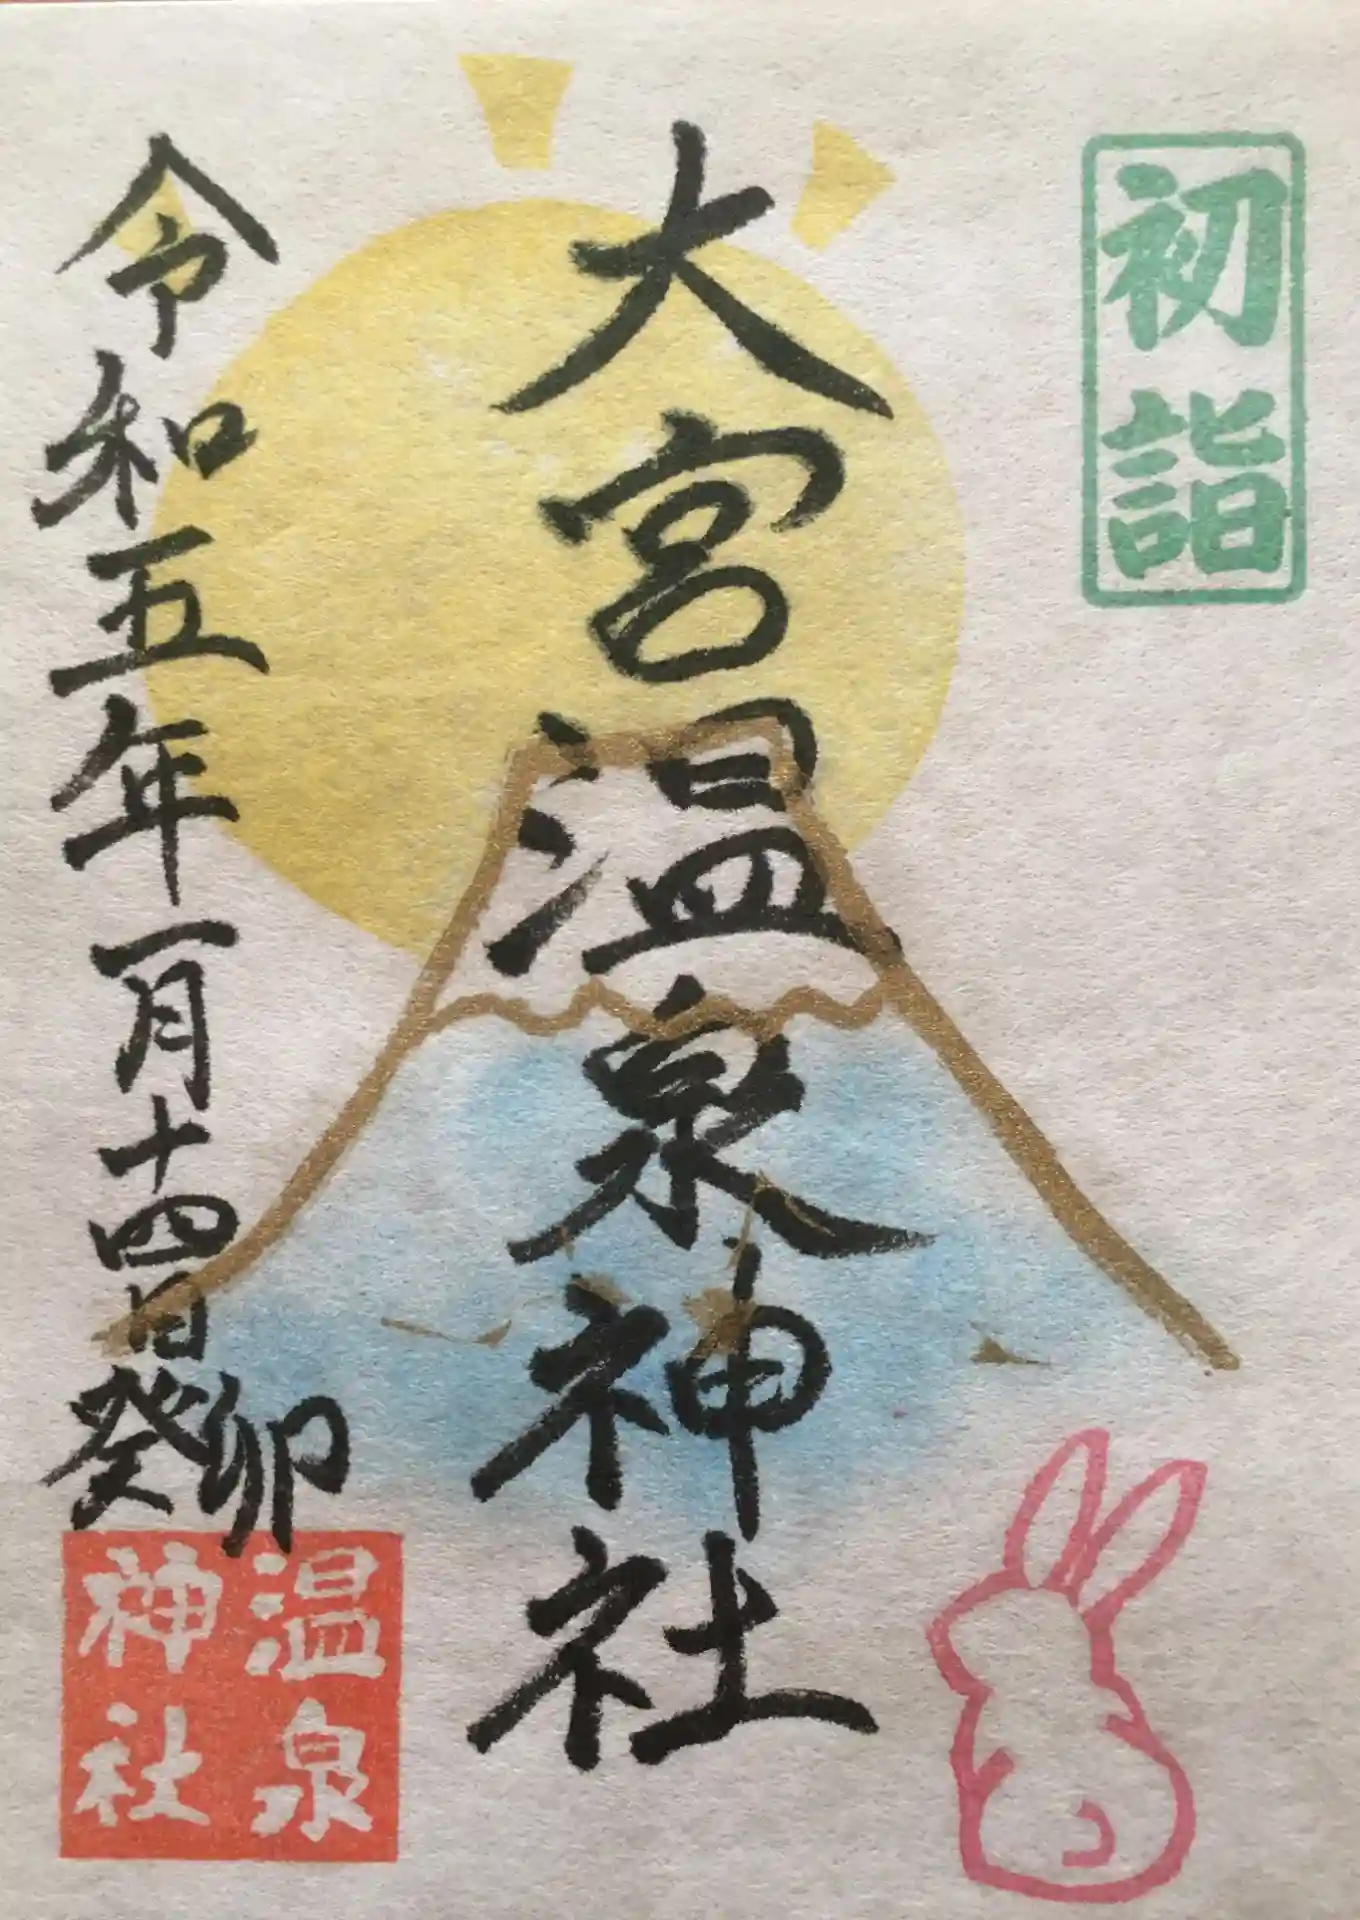 初詣
大宮温泉神社
令和五年一月十四日
癸卯
温泉
神社